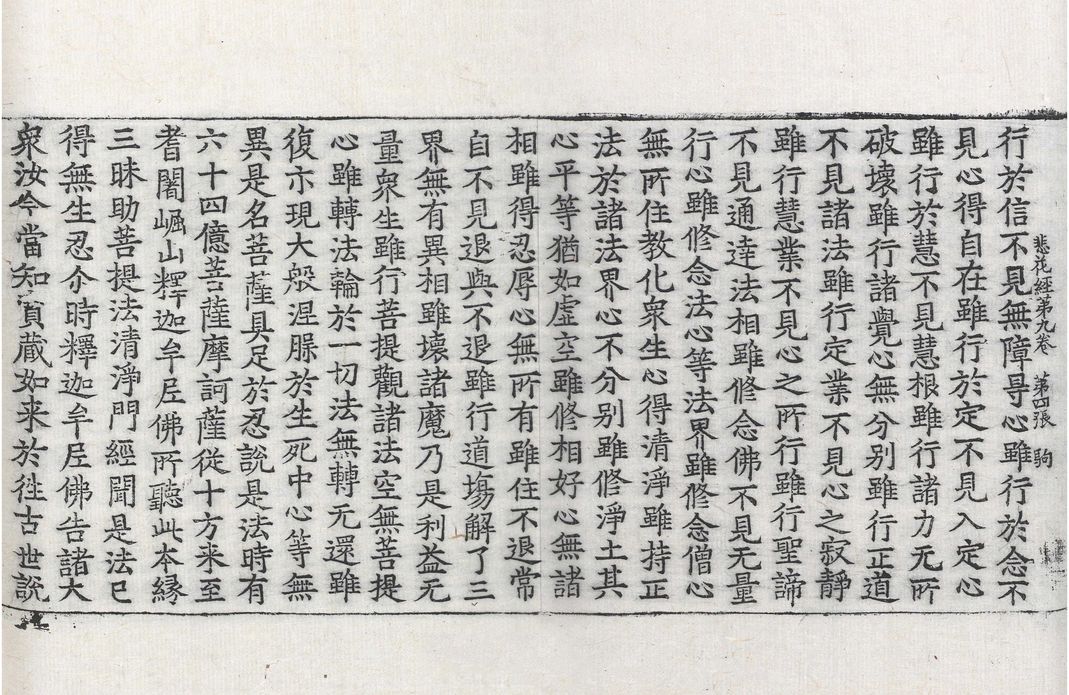 悲花經第九卷 第四張 駒
行於信不見無障㝵心雖行於念不
見心得自在雖行於定不見入定心
雖行於慧不見慧根雖行諸力无所
破壞雖行諸覺心無分别雖行正道
不見諸法雖行定業不見心之寂靜
雖行慧業不見心之所行雖行聖諦
不見通達法相雖修念佛不見无量
行心雖修念法心等法界雖修念僧心
無所住教化衆生心得清淨雖持正
法於諸法界心不分别雖修淨土其
心平等猶如虛空雖修相好心無諸
相雖得忍辱心無所有雖住不退常
自不見退與不退雖行道場解了三
界無有異相雖壞諸魔乃是利益无
量衆生雖行菩提觀諸法空無菩提
心雖轉法輪於一切法無轉无還雖
復示現大般涅槃於生死中心等無
異是名菩薩具足於忍說是法時有
六十四億菩薩摩訶薩從十方来至
耆闍崛山釋迦牟尼佛所聽此本緣
三昧助菩提法清淨門經聞是法已
得無生忍尒時釋迦牟尼佛告諸大
衆汝今當知寳蔵如来於往古世說